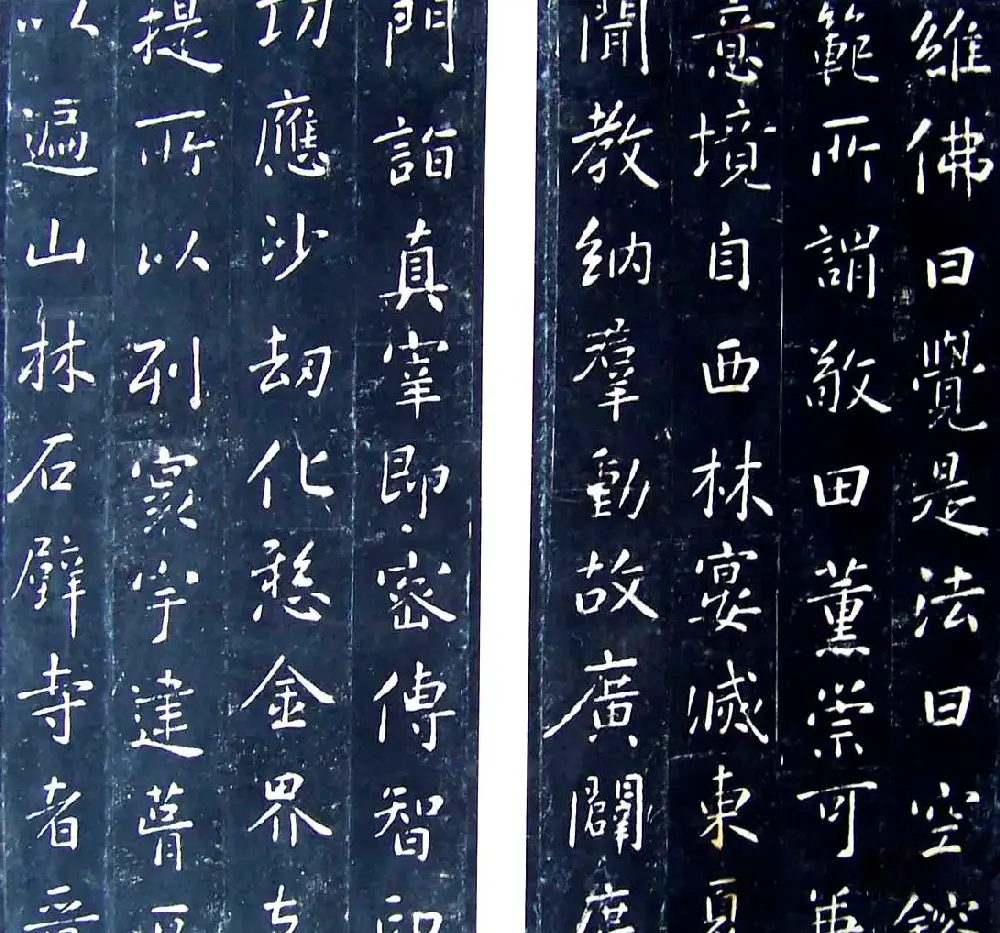 維佛曰覺是法曰空鎔
範所謂敬田薰崇可
意境自西林宴滅東夏
聞教納羣動故廣闢度
門詣真宰即密傳智印
功應沙劫化愍金界
提所以列寰宇建菁
以遍山林石壁寺者晉